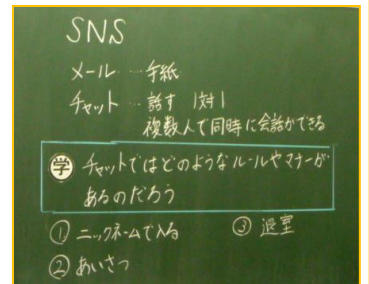 SNS
メール…手紙
チャット…話す 1対1
複数人で同時に会話ができる
学 チャットではどのようなルールやマナーが
あるのだろう
① ニックネームで入る ③ 退室
② あいさつ